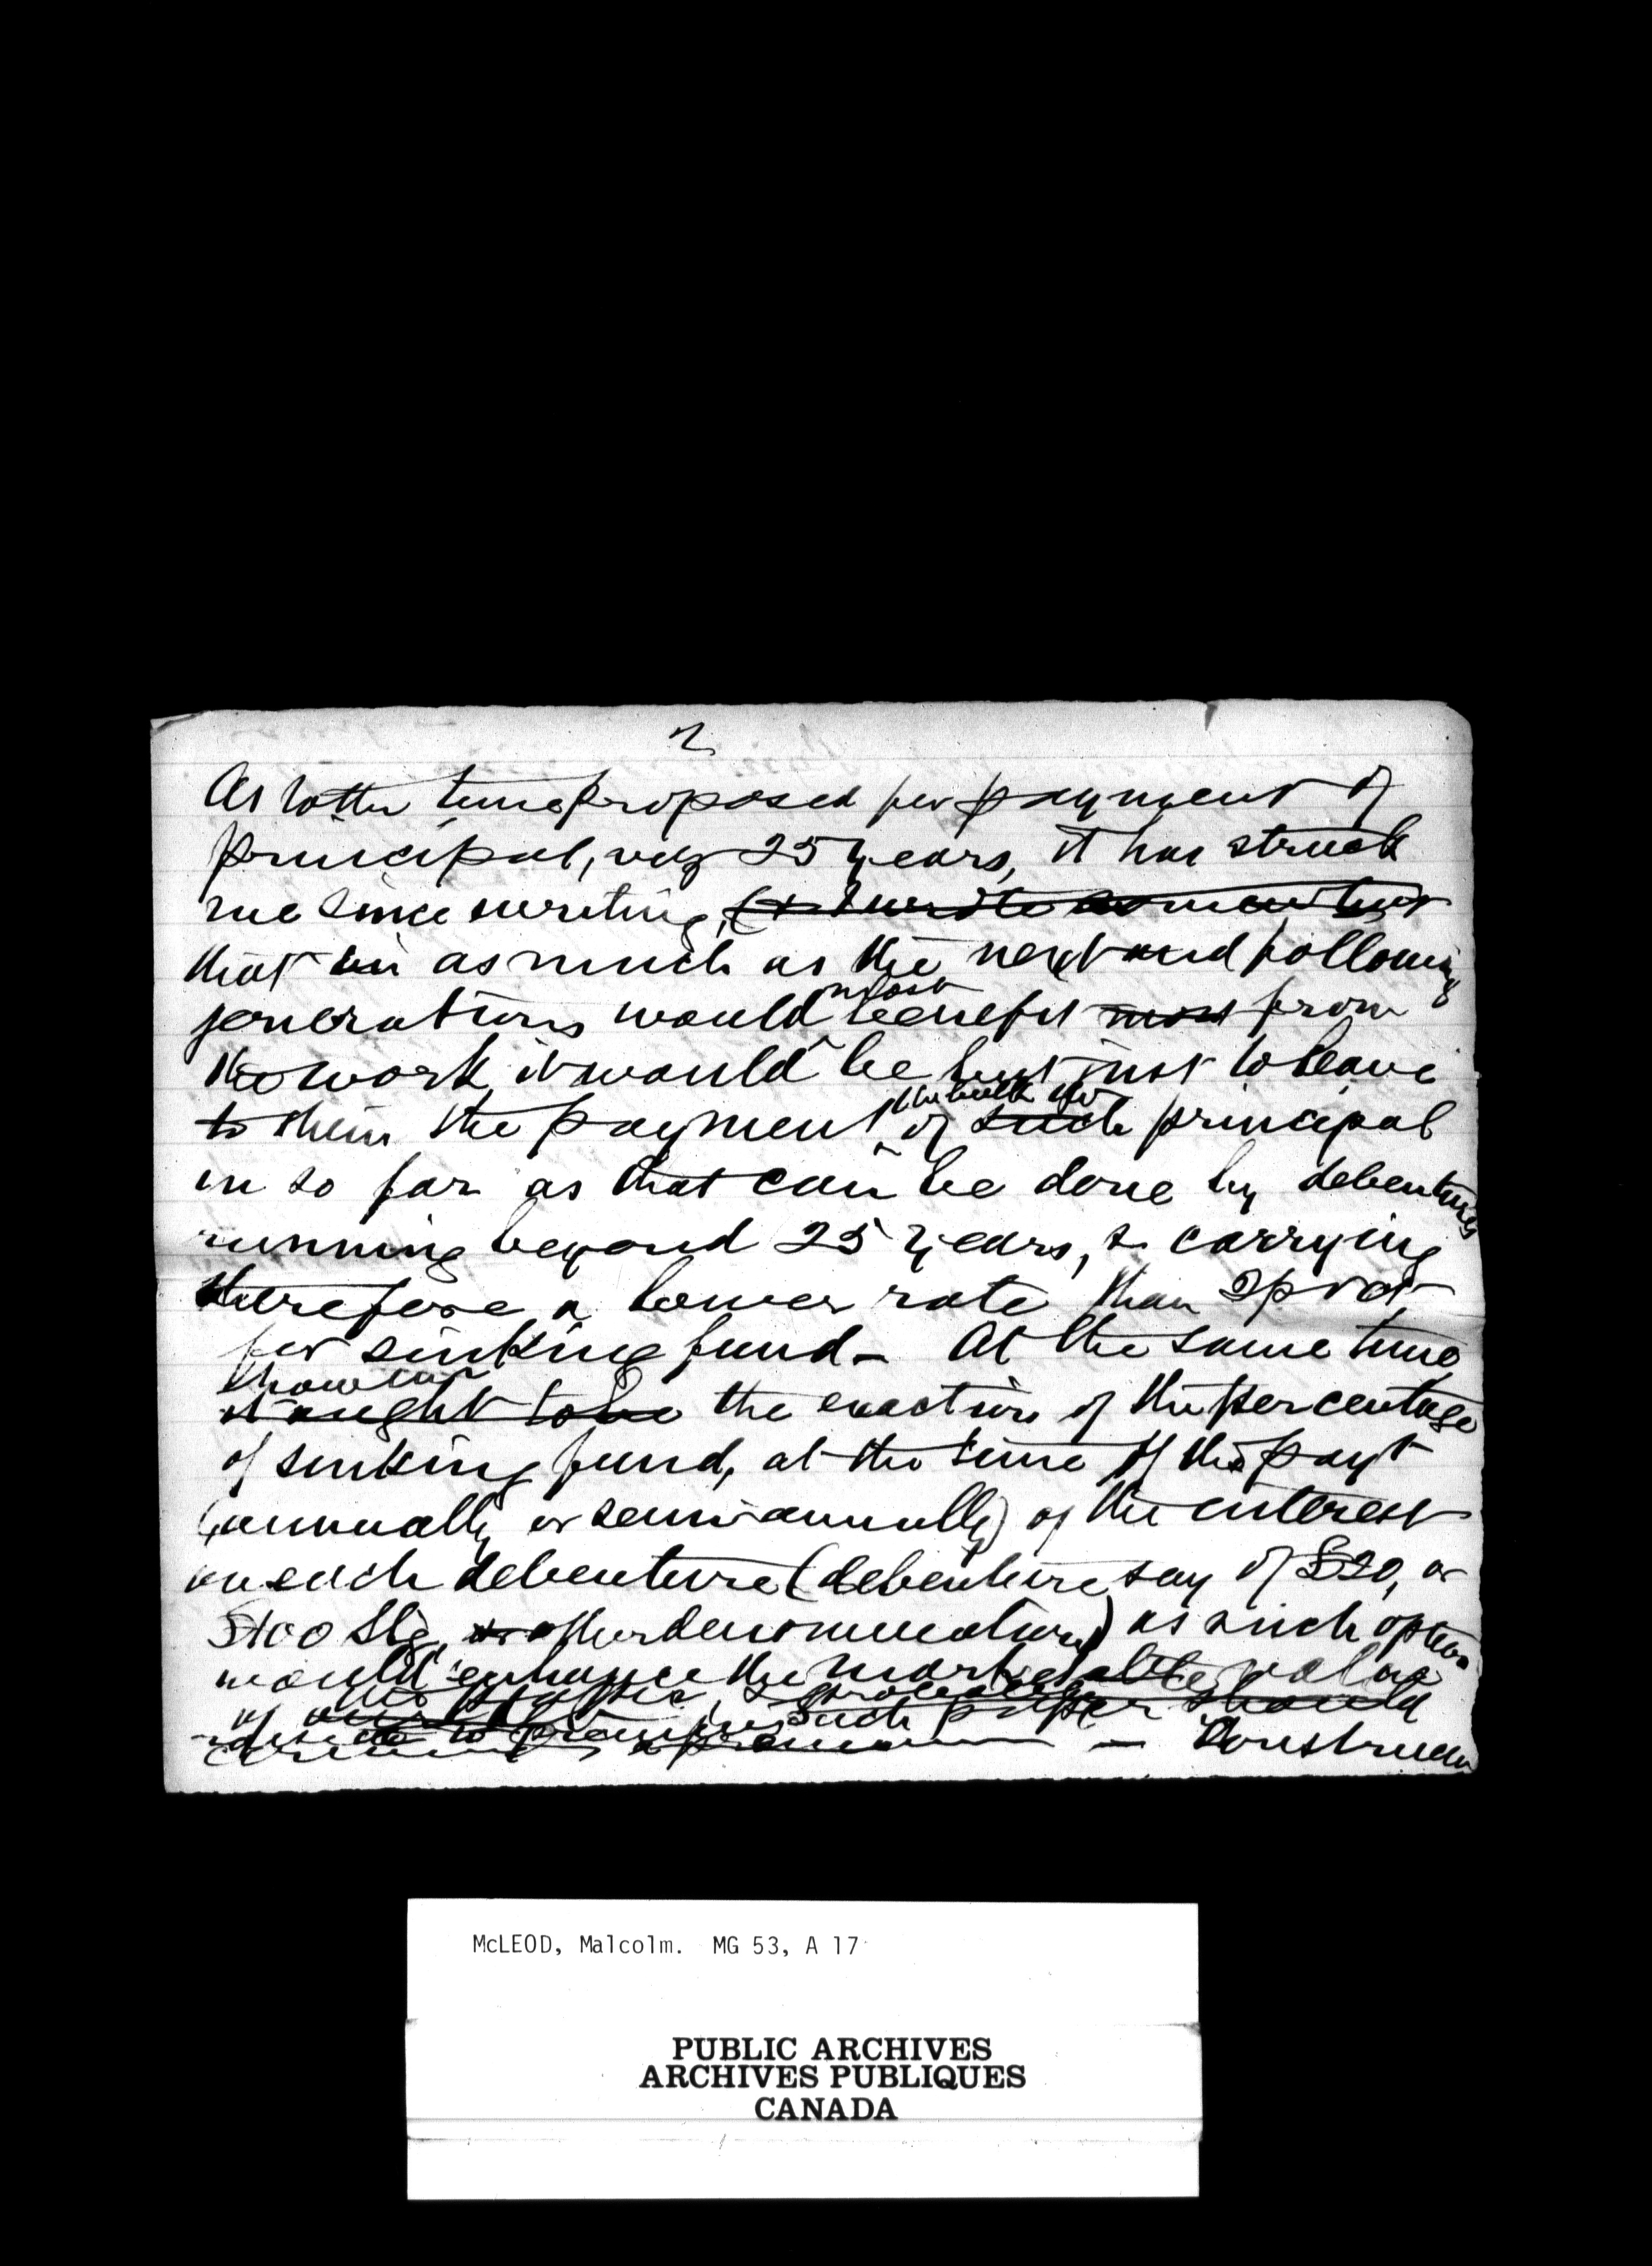 2
As to the time proposed for payment of
principal, viz 25 years, it has struck
me since writing,
that in as much as the next and following
most
generations would benefit most from
the work, it would be but just to leave
the bulk of the
to them the payment of such principal
in so far as that can be done by debentures
running beyond 25 years, & carrying
therefore a lower rate than 2 p ct
for sinking fund - At the same time
however
it ought to be the exaction of the percentage
of sinking fund, at the time of the payt
(annually or semi-annually) of the interest
on each debenture (debenture say of £20, or
£100 Stg, or other denomination) as such option
would enhance the marketable value
of
such paper should
- Construction
McLEOD, Malcolm. MG 53, A 17
PUBLIC ARCHIVES
ARCHIVES PUBLIQUES
CANADA